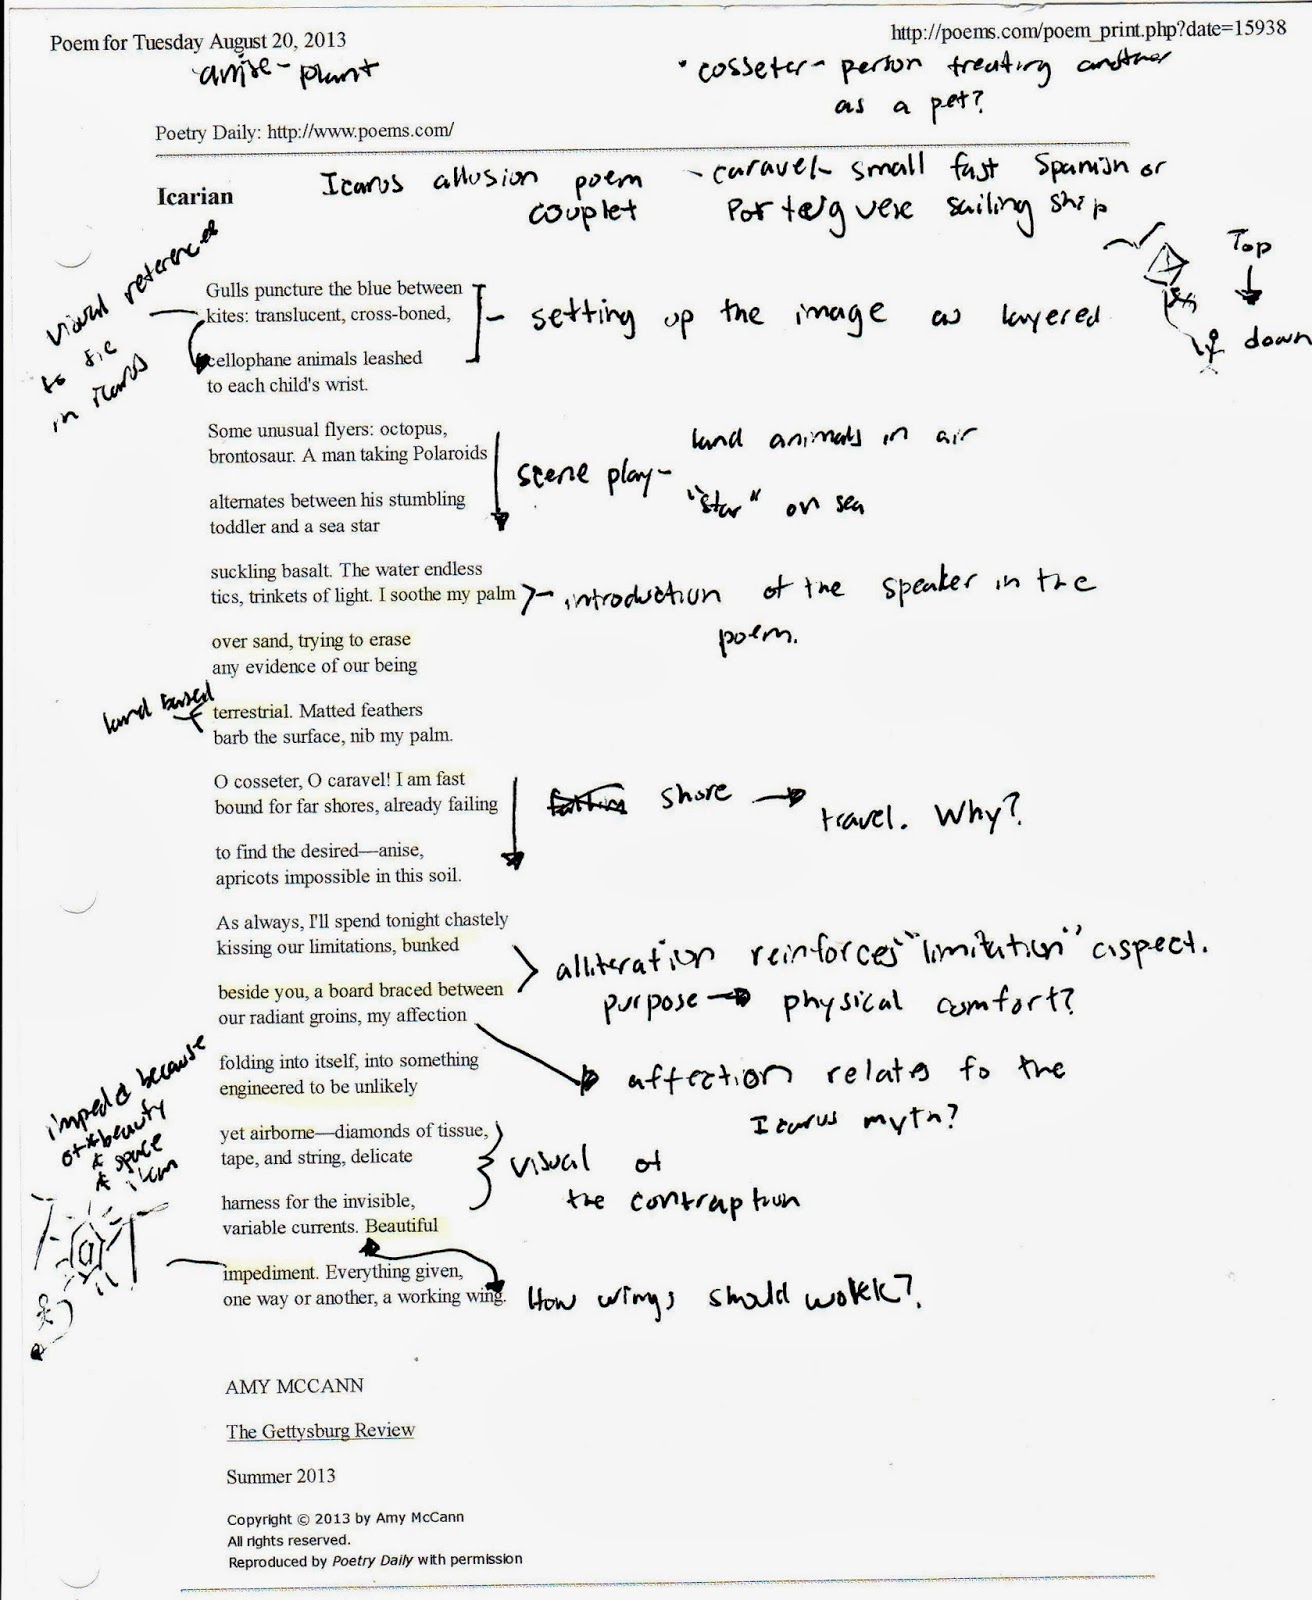 Poem for Tuesday August 20, 2013
http://poems.com/poem_print.php?date=15938
anise - plant
· cosseter - person treating another
as a pet?
Poetry Daily: http://www.poems.com/
Icarian
Icarus allusion poem
couplet
- caravel - small fast Spanish or
Porteiguese sailing ship
visual reference
to fic
in icarus
Top
down
Gulls puncture the blue between
kites: translucent, cross-boned,
- setting up the image as layered
cellophane animals leashed
to each child's wrist.
Some unusual flyers: octopus,
brontosaur. A man taking Polaroids
scene play -
land animals in air
"star" on sea
alternates between his stumbling
toddler and a sea star
suckling basalt. The water endless
tics, trinkets of light. I soothe my palm
- introduction of the speaker in the
poem.
over sand, trying to erase
any evidence of our being
land based
terrestrial. Matted feathers
barb the surface, nib my palm.
O cosseter, O caravel! I am fast
bound for far shores, already failing
shore → travel. Why?
to find the desired—anise,
apricots impossible in this soil.
As always, I'll spend tonight chastely
kissing our limitations, bunked
alliteration reinforces "limitation" aspect.
purpose → physical comfort?
beside you, a board braced between
our radiant groins, my affection
affection relates to the
Icarus myth?
folding into itself, into something
engineered to be unlikely
imped because
of beauty
& space
yet airborne—diamonds of tissue,
tape, and string, delicate
visual of
the contraption
harness for the invisible,
variable currents. Beautiful
impediment. Everything given,
one way or another, a working wing.
How wings should work?
AMY MCCANN
The Gettysburg Review
Summer 2013
Copyright © 2013 by Amy McCann
All rights reserved.
Reproduced by Poetry Daily with permission